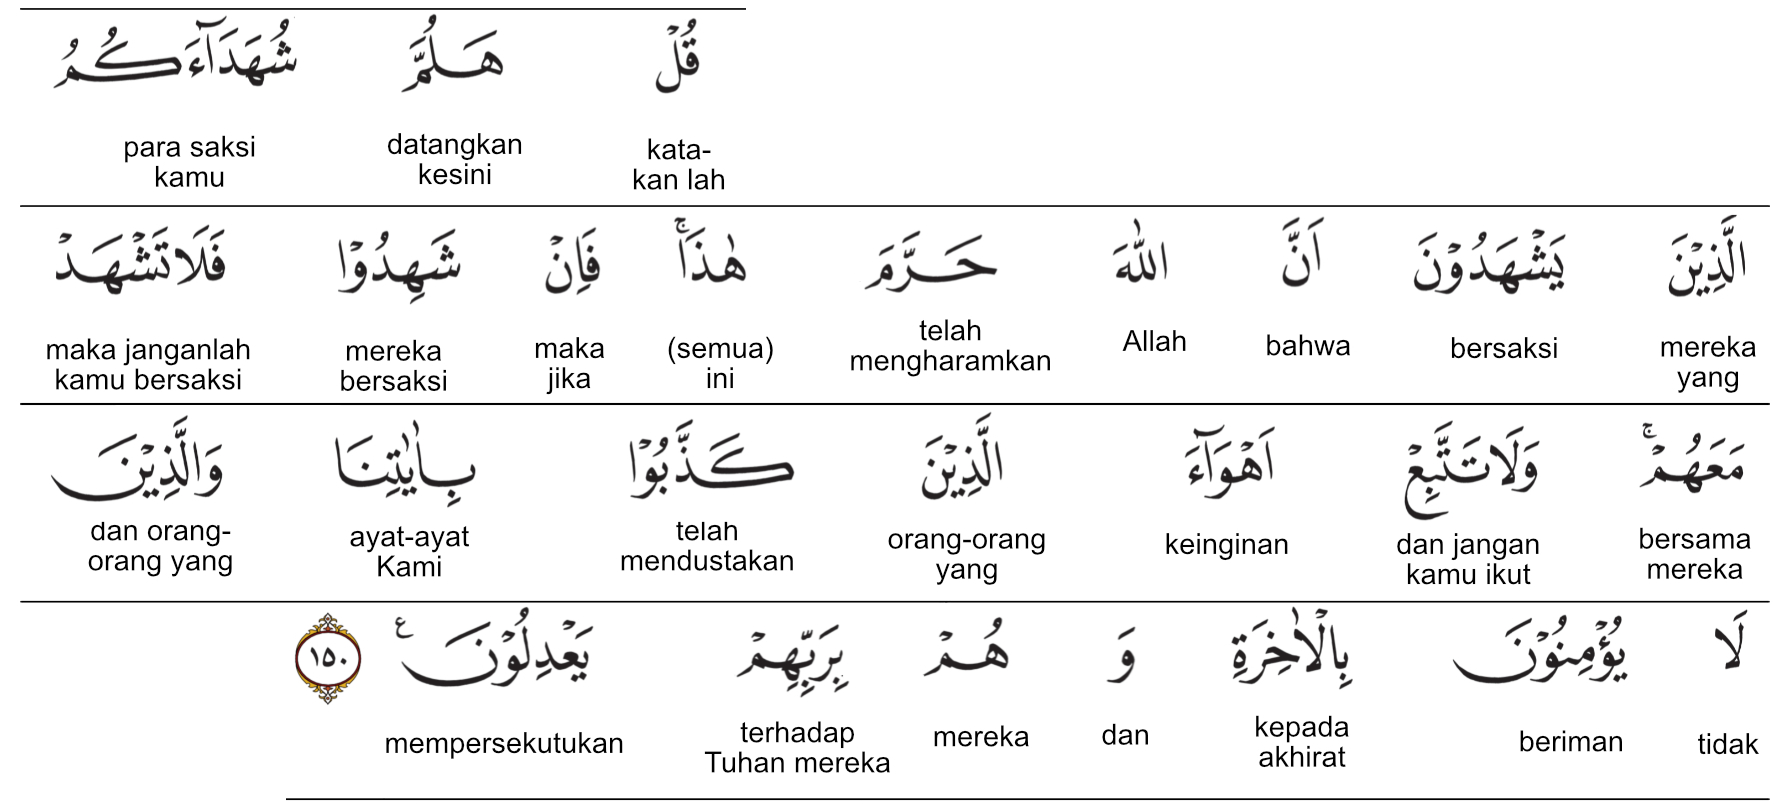 قُلْ هَلُمَّ شُهَدَاۤءَكُمُ
kata- datangkan para saksi
kan lah kesini kamu
الَّذِيْنَ يَشْهَدُوْنَ اَنَّ اللّٰهَ حَرَّمَ هٰذَاۚ فَاِنْ شَهِدُوْا فَلَا تَشْهَدْ
mereka bersaksi bahwa Allah telah (semua) maka mereka maka janganlah
yang mengharamkan ini jika bersaksi kamu bersaksi
مَعَهُمْۚ وَلَا تَتَّبِعْ اَهْوَاۤءَ الَّذِيْنَ كَذَّبُوْا بِاٰيٰتِنَا وَالَّذِيْنَ
bersama dan jangan keinginan orang-orang telah ayat-ayat dan orang-
mereka kamu ikut yang mendustakan Kami orang yang
لَا يُؤْمِنُوْنَ بِالْاٰخِرَةِ وَ هُمْ بِرَبِّهِمْ يَعْدِلُوْنَ ع ١٥٠
tidak beriman kepada dan mereka terhadap mempersekutukan
akhirat Tuhan mereka